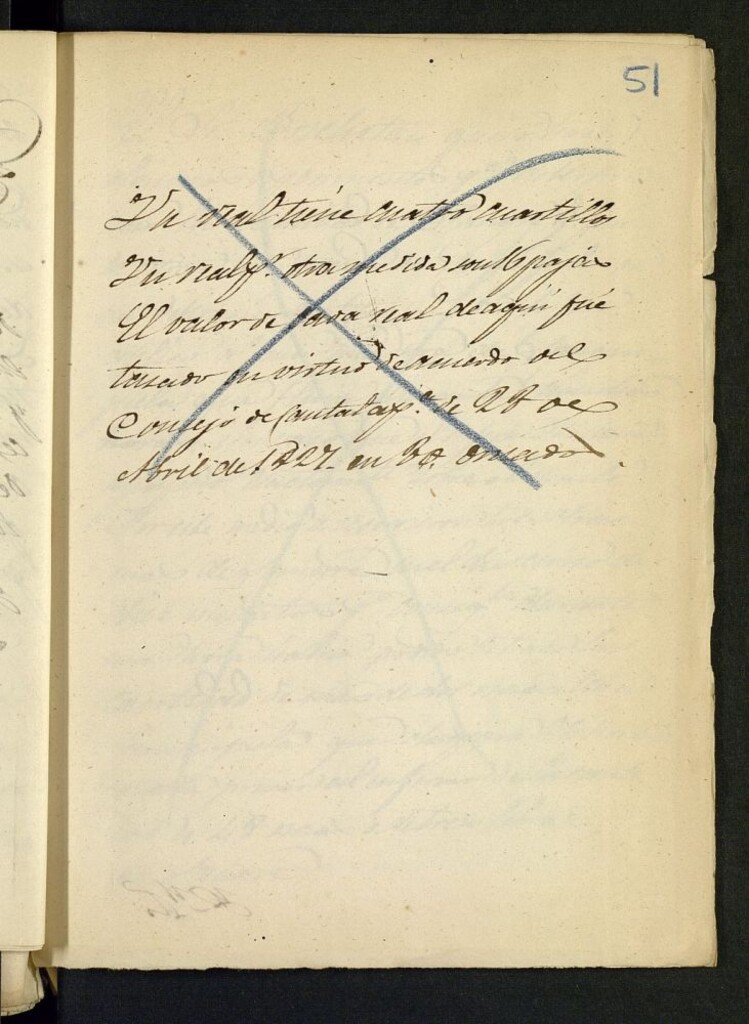 51
Un real tiene cuatro cuartillos
Un real pr. otra medida son 16 pajas
El valor de cada real de aqui fué
tasado en virtud de acuerdo del
Consejo de de 28 de
Abril de 1827 en